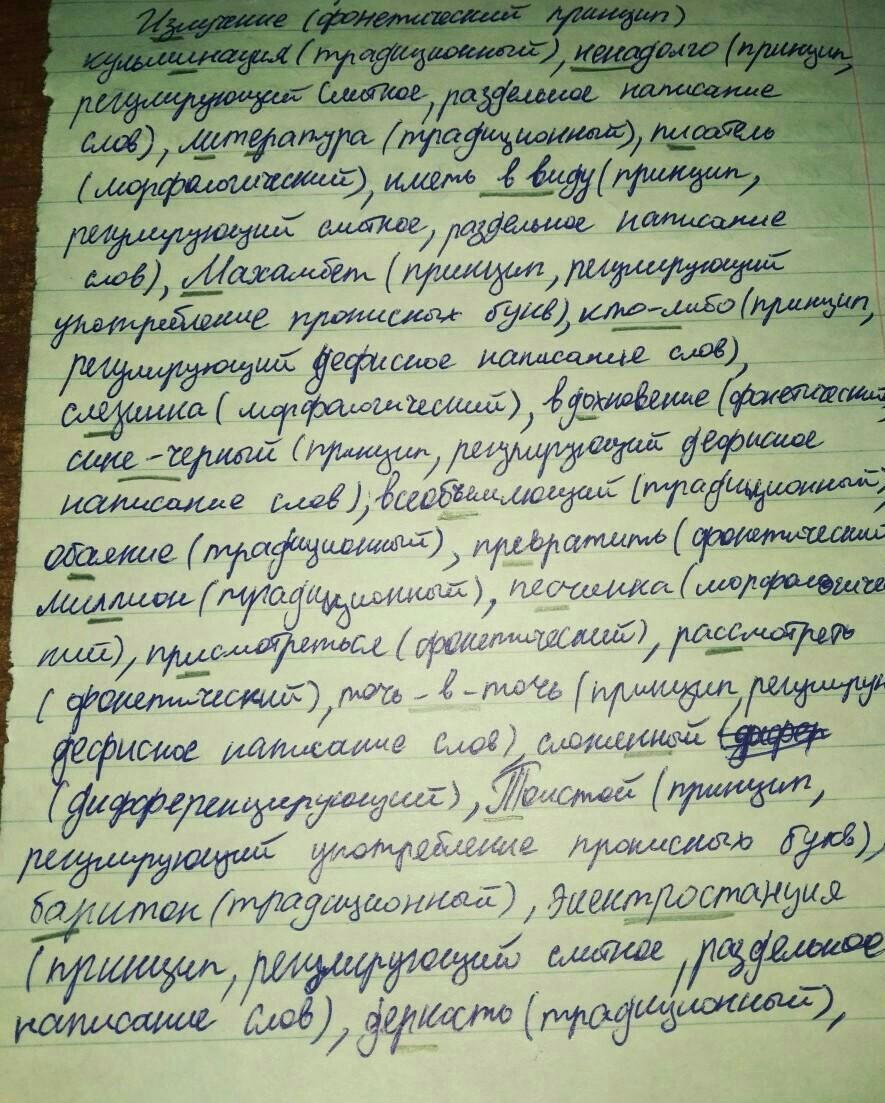 Излучение (фонетический принцип)
кульминация (традиционный), ненадолго (принцип,
регулирующий слитное, раздельное написание
слов), литература (традиционный), писатель
(морфологический), иметь в виду (принцип,
регулирующий слитное, раздельное написание
слов), Махамбет (принцип, регулирующий
употребление прописных букв), кто-либо (принцип,
регулирующий дефисное написание слов),
слезинка (морфологический), вдохновение (фонетический,
сине-черный (принцип, регулирующий дефисное
написание слов), всеобъемлющий (традиционный),
обаяние (традиционный), превратить (фонетический
миллион (традиционный), песчинка (морфологиче
кий), присмотреться (фонетический), рассмотреть
(фонетический), точь-в-точь (принцип, регулирую
дефисное написание слов), сложенный
(дифференцирующий), Толстой (принцип,
регулирующий употребление прописных букв),
баритон (традиционный), электростанция
(принцип, регулирующий слитное, раздельное
написание слов), дерзость (традиционный),